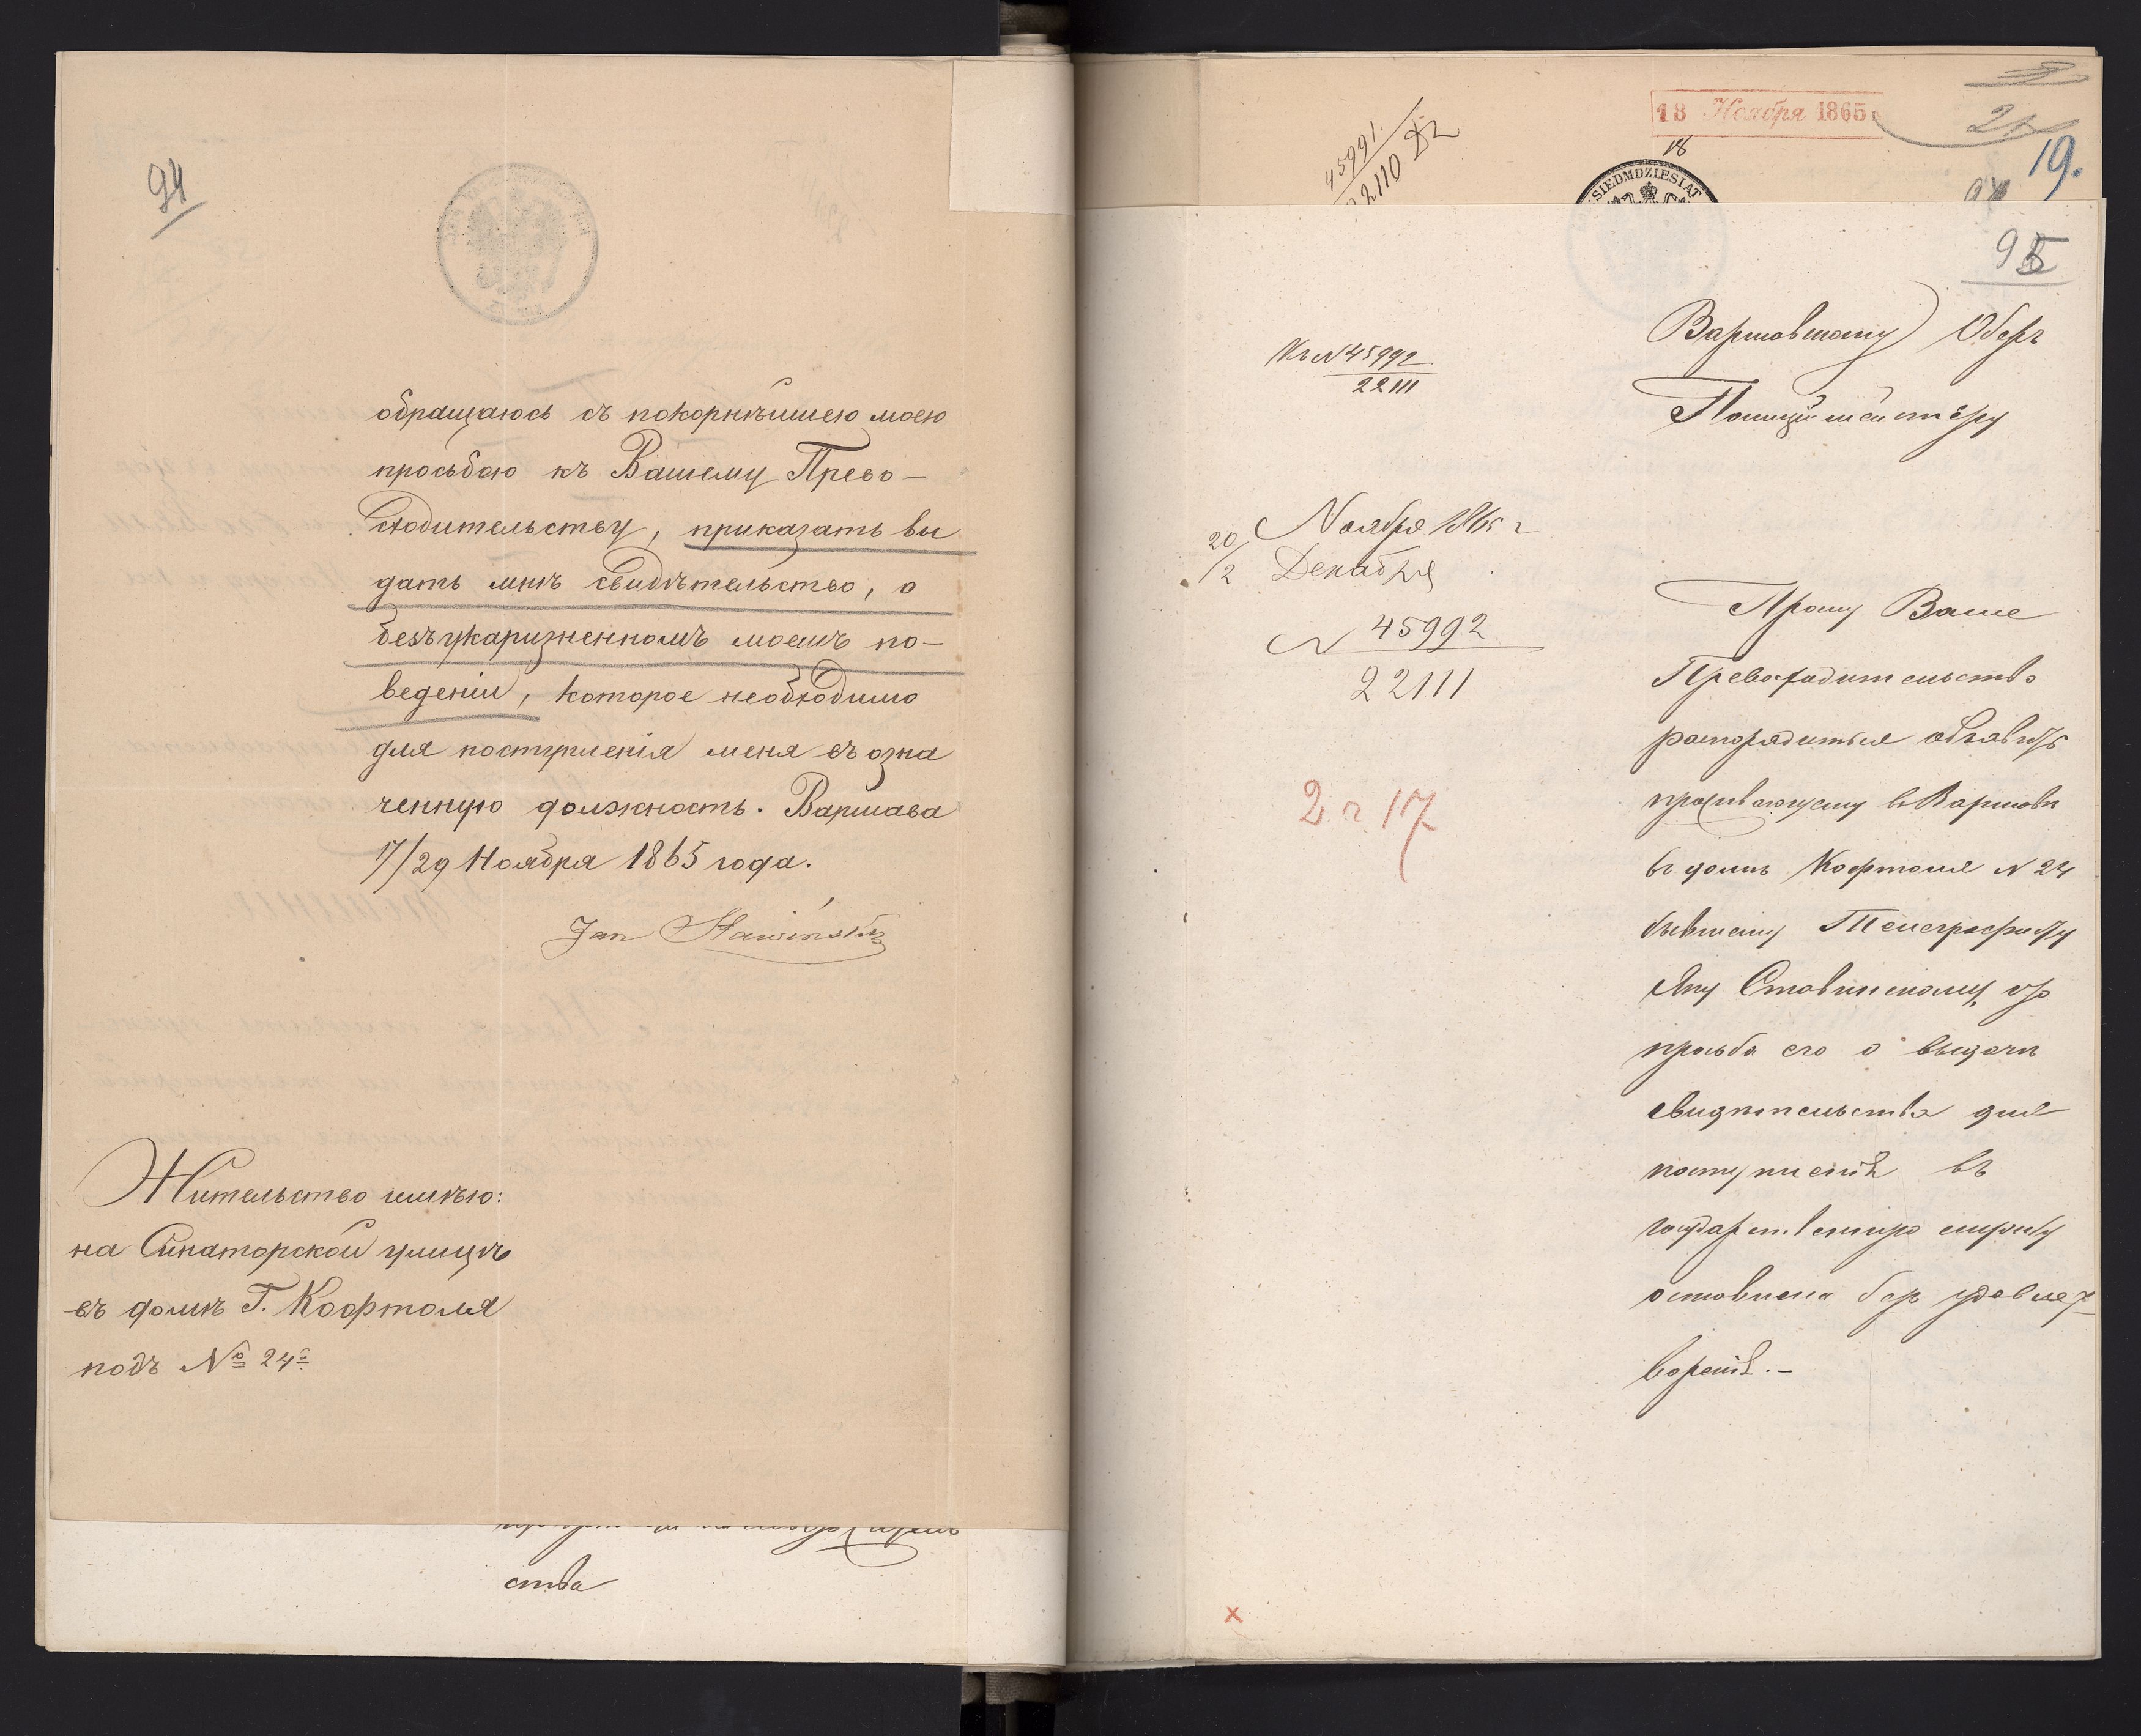 94
обращаюсь съ покорнѣишею моею
просьбою къ Вашему Прево-
сходительству, приказать вы
дать мнѣ свидѣтельство, о
безъукаризненномъ моемъ по-
веденіи, которое необходимо
для поступленія меня въ озна
ченную должность. Варшава
17/29 Ноября 1865 года.
Jan Stawiński
Жительство имѣю:
на Сенаторской улицѣ
въ домѣ Г. Кофтоля
подъ № 24й
ства
18 Ноября 1865
18
45991
22110
SIEDMDZIESIĄT
19.
95
Къ N 45992
22111
Варшавскому Оберъ
Полицiймейстеру
20/2 Ноября 1865 г
Декабря
N 45992
22111
2 г 17
Прошу Ваше
Превосходительство
распорядиться объявить
проживающему въ Варшавѣ
въ домѣ Кофтоля N 24
бывшему Телеграфисту
Яну Ставинскому, что
просьба его о выдачѣ
свидѣтельства для
поступленія въ
государственную службу
оставлена безъ удовлет-
воренія.-
x